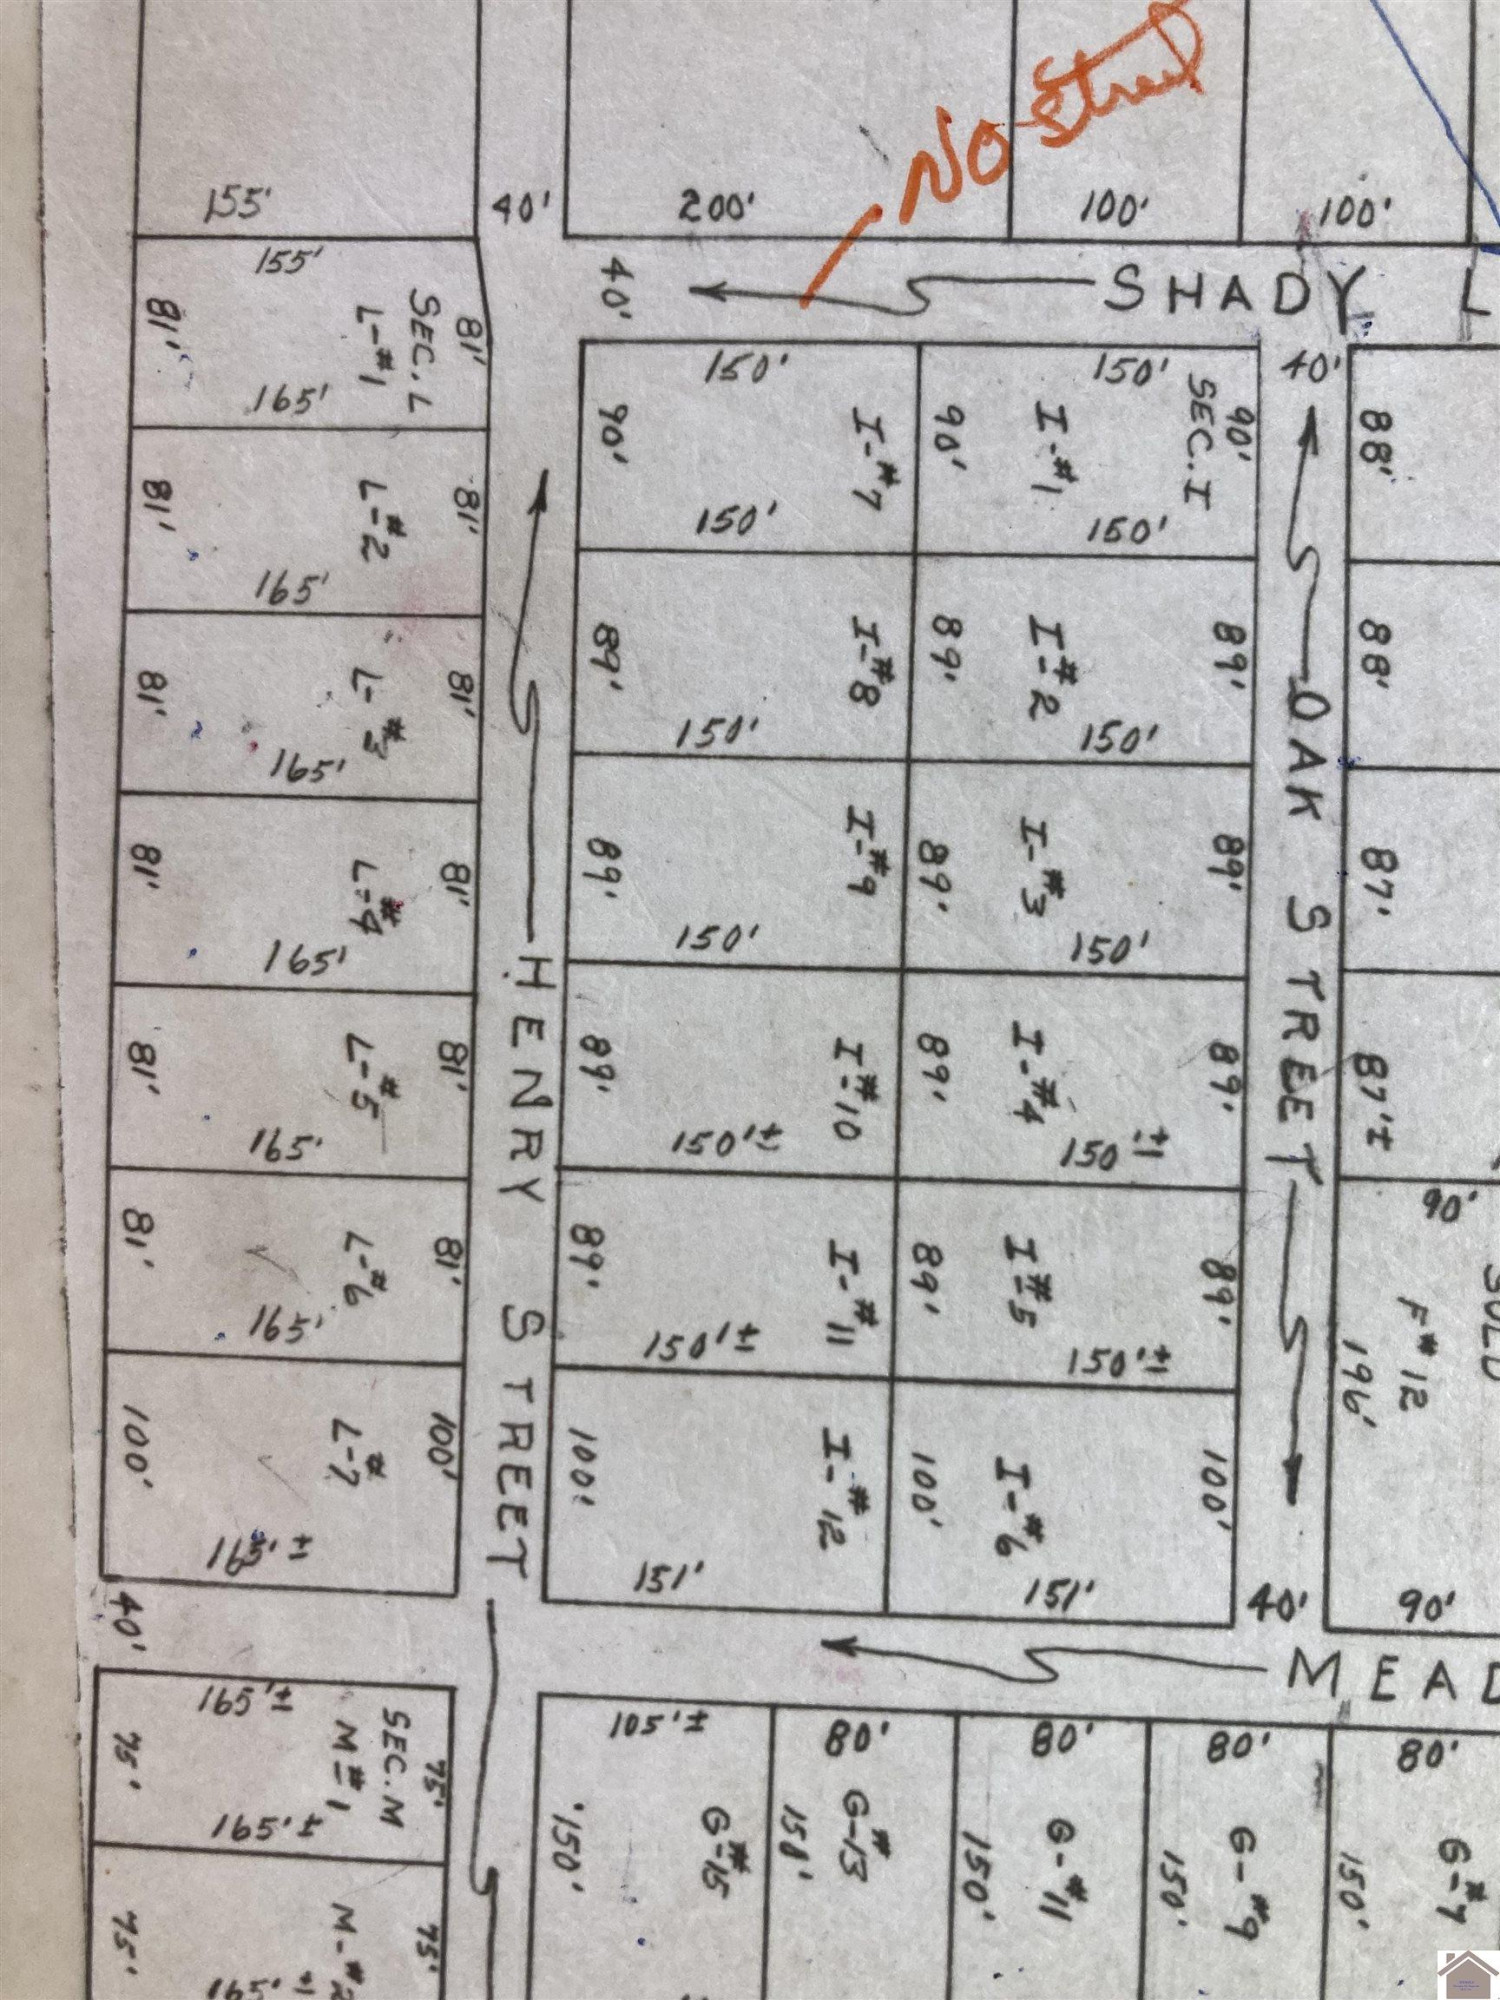 No Street
155'
40'
200'
100'
100'
SHADY L
40'
155'
81'
SEC. L
L-#1
81'
165'
81'
L-#2
81'
165'
81'
L-#3
81'
165'
81'
L-#4
81'
165'
81'
L-#5
81'
165'
81'
L-#6
81'
165'
100'
L-#7
100'
165'±
40'
HENRY STREET
150'
90'
I-#7
90'
150'
89'
I-#8
89'
150'
89'
I-#9
89'
150'
89'
I-#10
89'
150'±
89'
I-#11
89'
150'±
100'
I-#12
100'
151'
150'
SEC. I
I-#1
90'
150'
I-#2
89'
150'
I-#3
89'
150'
I-#4
89'
150'±
I-#5
89'
150'±
I-#6
100'
151'
40'
OAK STREET
40'
88'
88'
87'
87'±
90'
SOLD
F#12
196'
90'
MEAD
165'±
SEC. M
M-#1
75'
75'
165'±
M-#2
75'
75'
165'±
105'±
150'
G-#15
80'
G-#13
150'
80'
G-#11
150'
80'
G-#9
150'
80'
G-#7
150'